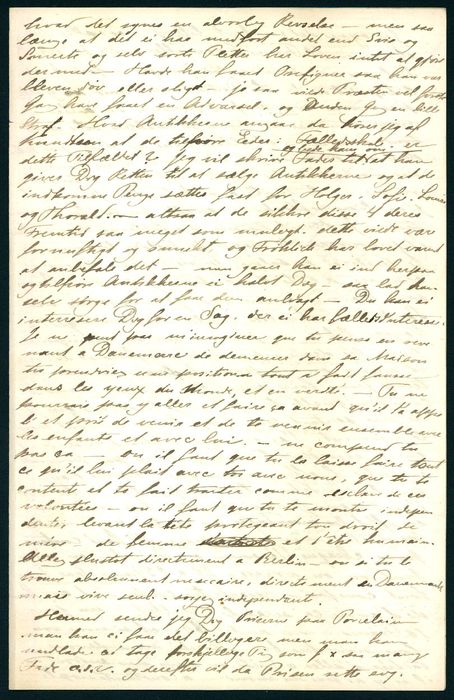 hvad det synes en alvorlig Kerselse — men saa
længe at det ei har medført andet end Svie og
Smerte og sels sorte Pletter har Loven intet at gjøre
dermed — Havde han faaet var
bleven døv eller sligt — ja saa vilde Præsten vel
han have faaet en Advarsel, og en lille
Straf. Hvad Antikkerne angaaer, da
at de tilhøre Eder: Fælledsskab er
dette Tilfældet? Jeg vil skrive Fader til at han
giver Dig Retten til at sælge Antikkerne og at de
indkomne Penge sættes fast for Holger, Sofi, Louis
og Thorald. — altsaa at de sikkre disse 4 deres
Fremtid saa meget som muligt. dette vilde være
fornuftigt og smukt og Frölich har lovet mand
at anbefale det — men gaaer han ei ind herpaa
og tilhøre Antikkerne ei halvt Dig — saa lad ham
selv sørge for at faae dem anbragt — Du kan ei
interessere Dig for en Sag, der ei har fælleds Interesse.
Je ne peut pas m'imaginer que tu penses en reve
nant à Danemarc de demeurer dans sa Maison
tu prendrais une position tout à fait fausse
dans les yeux du Monde, et en verité. — Tu ne
pourrais pas y aller et faire ça avant qu'il t'a appe
lé et prié de venir et de te reunir ensemble avec
les enfants et avec lui. — ne comprend tu
pas ça — ou il faut que tu le laisse faire tout
ce qu'il lui plait avec toi avec nous, que tu te
content et te fait traiter comme esclave de ces
volontées — ou il faut que tu te montre indepen
dente, levant la tête protegeant ton droit de
mère — de femme et d'être humain.
Allez plustot directement à Berlin — ou si tu le
trouve absolument necessaire, directement en Danemark
mais vivre seul. soyez independent.
Hermed sender jeg Dig Priserne paa Porcelain
man kan ei faae det billigere men man kan
ei tage forskjellige Ting som f x saa mang
Fade o.s.v. og derefter vil da Prisen rette sig.